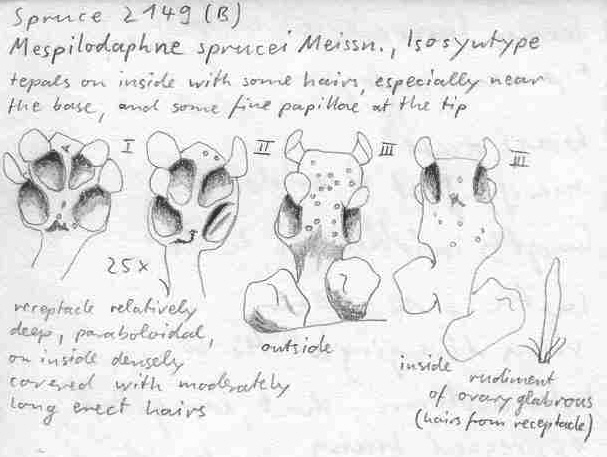 Spruce 2149 (B)
Mespilodaphne sprucei Meissn., Isosyntype
tepals on inside with some hairs, especially near
the base, and some fine papillae at the tip
I
II
III
III
25x
outside
inside
receptacle relatively
deep, paraboloidal,
on inside densely
covered with moderately
long erect hairs
rudiment
of ovary glabrous
(hairs from receptacle)